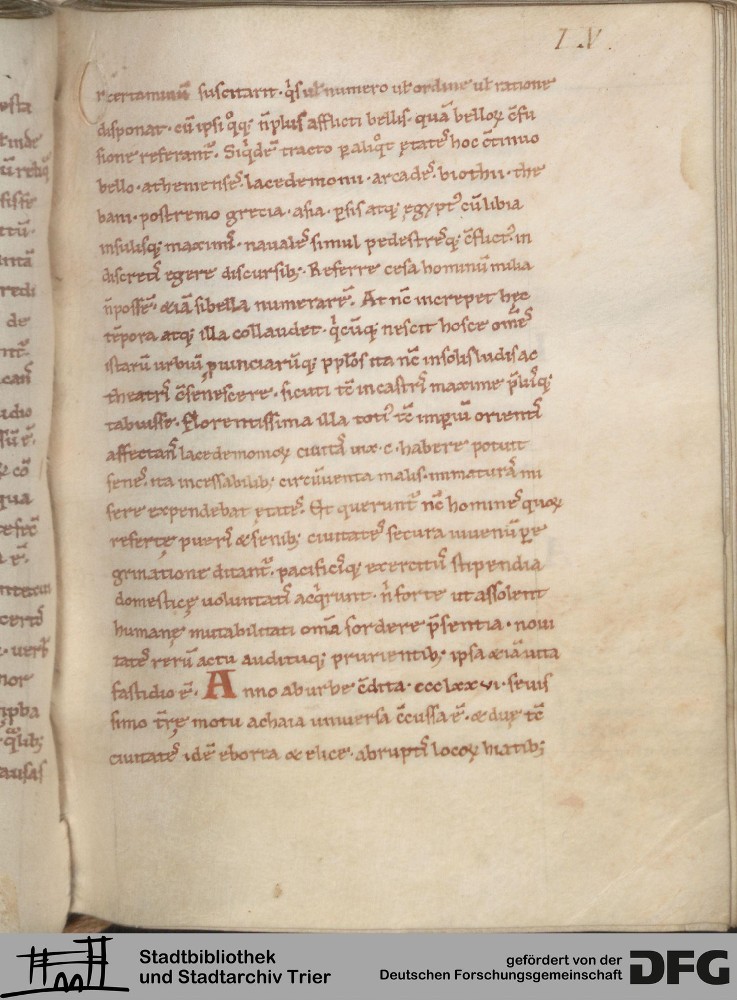 I .V.
r certaminum suscitarit · q̓s ul̓ numero ul̓ ordine ul̓ ratione
disponat · cū ipsi q̊q; n̄ plus afflicti bellis · quā belloꝝ c̄fu
sione referant᷑ · Siq̓dē tracto ꝑ aliq̊t ętateſ hoc c̄tinuo
bello · athenienseſ · lacedemonii · arcadeſ · biothii · the
bani · postremo grecia · asia · ꝑsis atq; ęgypt᷒ cū libia
insulisq; maximiſ · navaleſ simul pedestreſq; c̄flict᷒ in
discretiſ egere discursib; · Referre cesa hominū milia
n̄ possē · & iā si bella numerarē · At nc̄ increpet hęc
tēpora atq; illa collaudet · q̓cūq; nescit hosce om̄eſ
istarū urbiū ꝓuinciarūq; pplōs ita nc̄ in solis ludis ac
theatriſ c̄senescere · sicuti tc̄ in castriſ maxime p̄liiſq;
tabuisse · Florentissima illa toti᷒ tc̄ imperiū orientiſ
affectanſ lacedemonioꝝ ciuitaſ uix · c · habere potuit
seneſ · ita incessabilib; circūuenta malis · immaturaſ mi
sere expendebat ętateſ · Et querunt᷑ nc̄ homineſ quoꝝ
refertę pueriſ & senib; ciuitateſ secura iuuenū ꝑe
grinatione ditant᷑ · pacificiſq; exercitiiſ stipendia
domesticę uoluntatiſ acq̓runt · n̓ forte ut assolent
humanę mutabilitati om̄a sordere p̄sentia · noui
tatē rerū actu audituq; prurientib; ipsa & iā uita
fastidio ē · Anno ab urbe c̄dita · ccclxxvi · sęuis
simo t̄rę motu achaia uniuersa c̄cussa ē · & duę tc̄
ciuitateſ idē eborra & elice · abruptiſ locoꝝ hiatib;
Stadtbibliothek
und Stadtarchiv Trier
gefördert von der
Deutschen Forschungsgemeinschaft
DFG